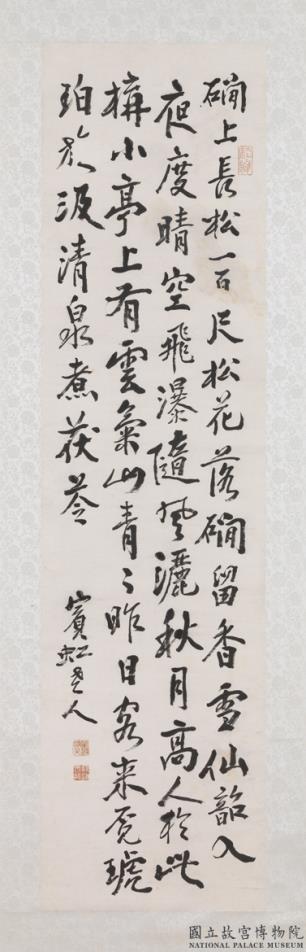 磵上長松一百尺松花落磵留香雪仙韶入
夜度晴空飛瀑隨風灑秋月高人於此
構小亭上有雲氣山青〻昨日客来覓琥
珀旋汲清泉煮茯苓
賓虹老人
國立故宮博物院
NATIONAL PALACE MUSEUM